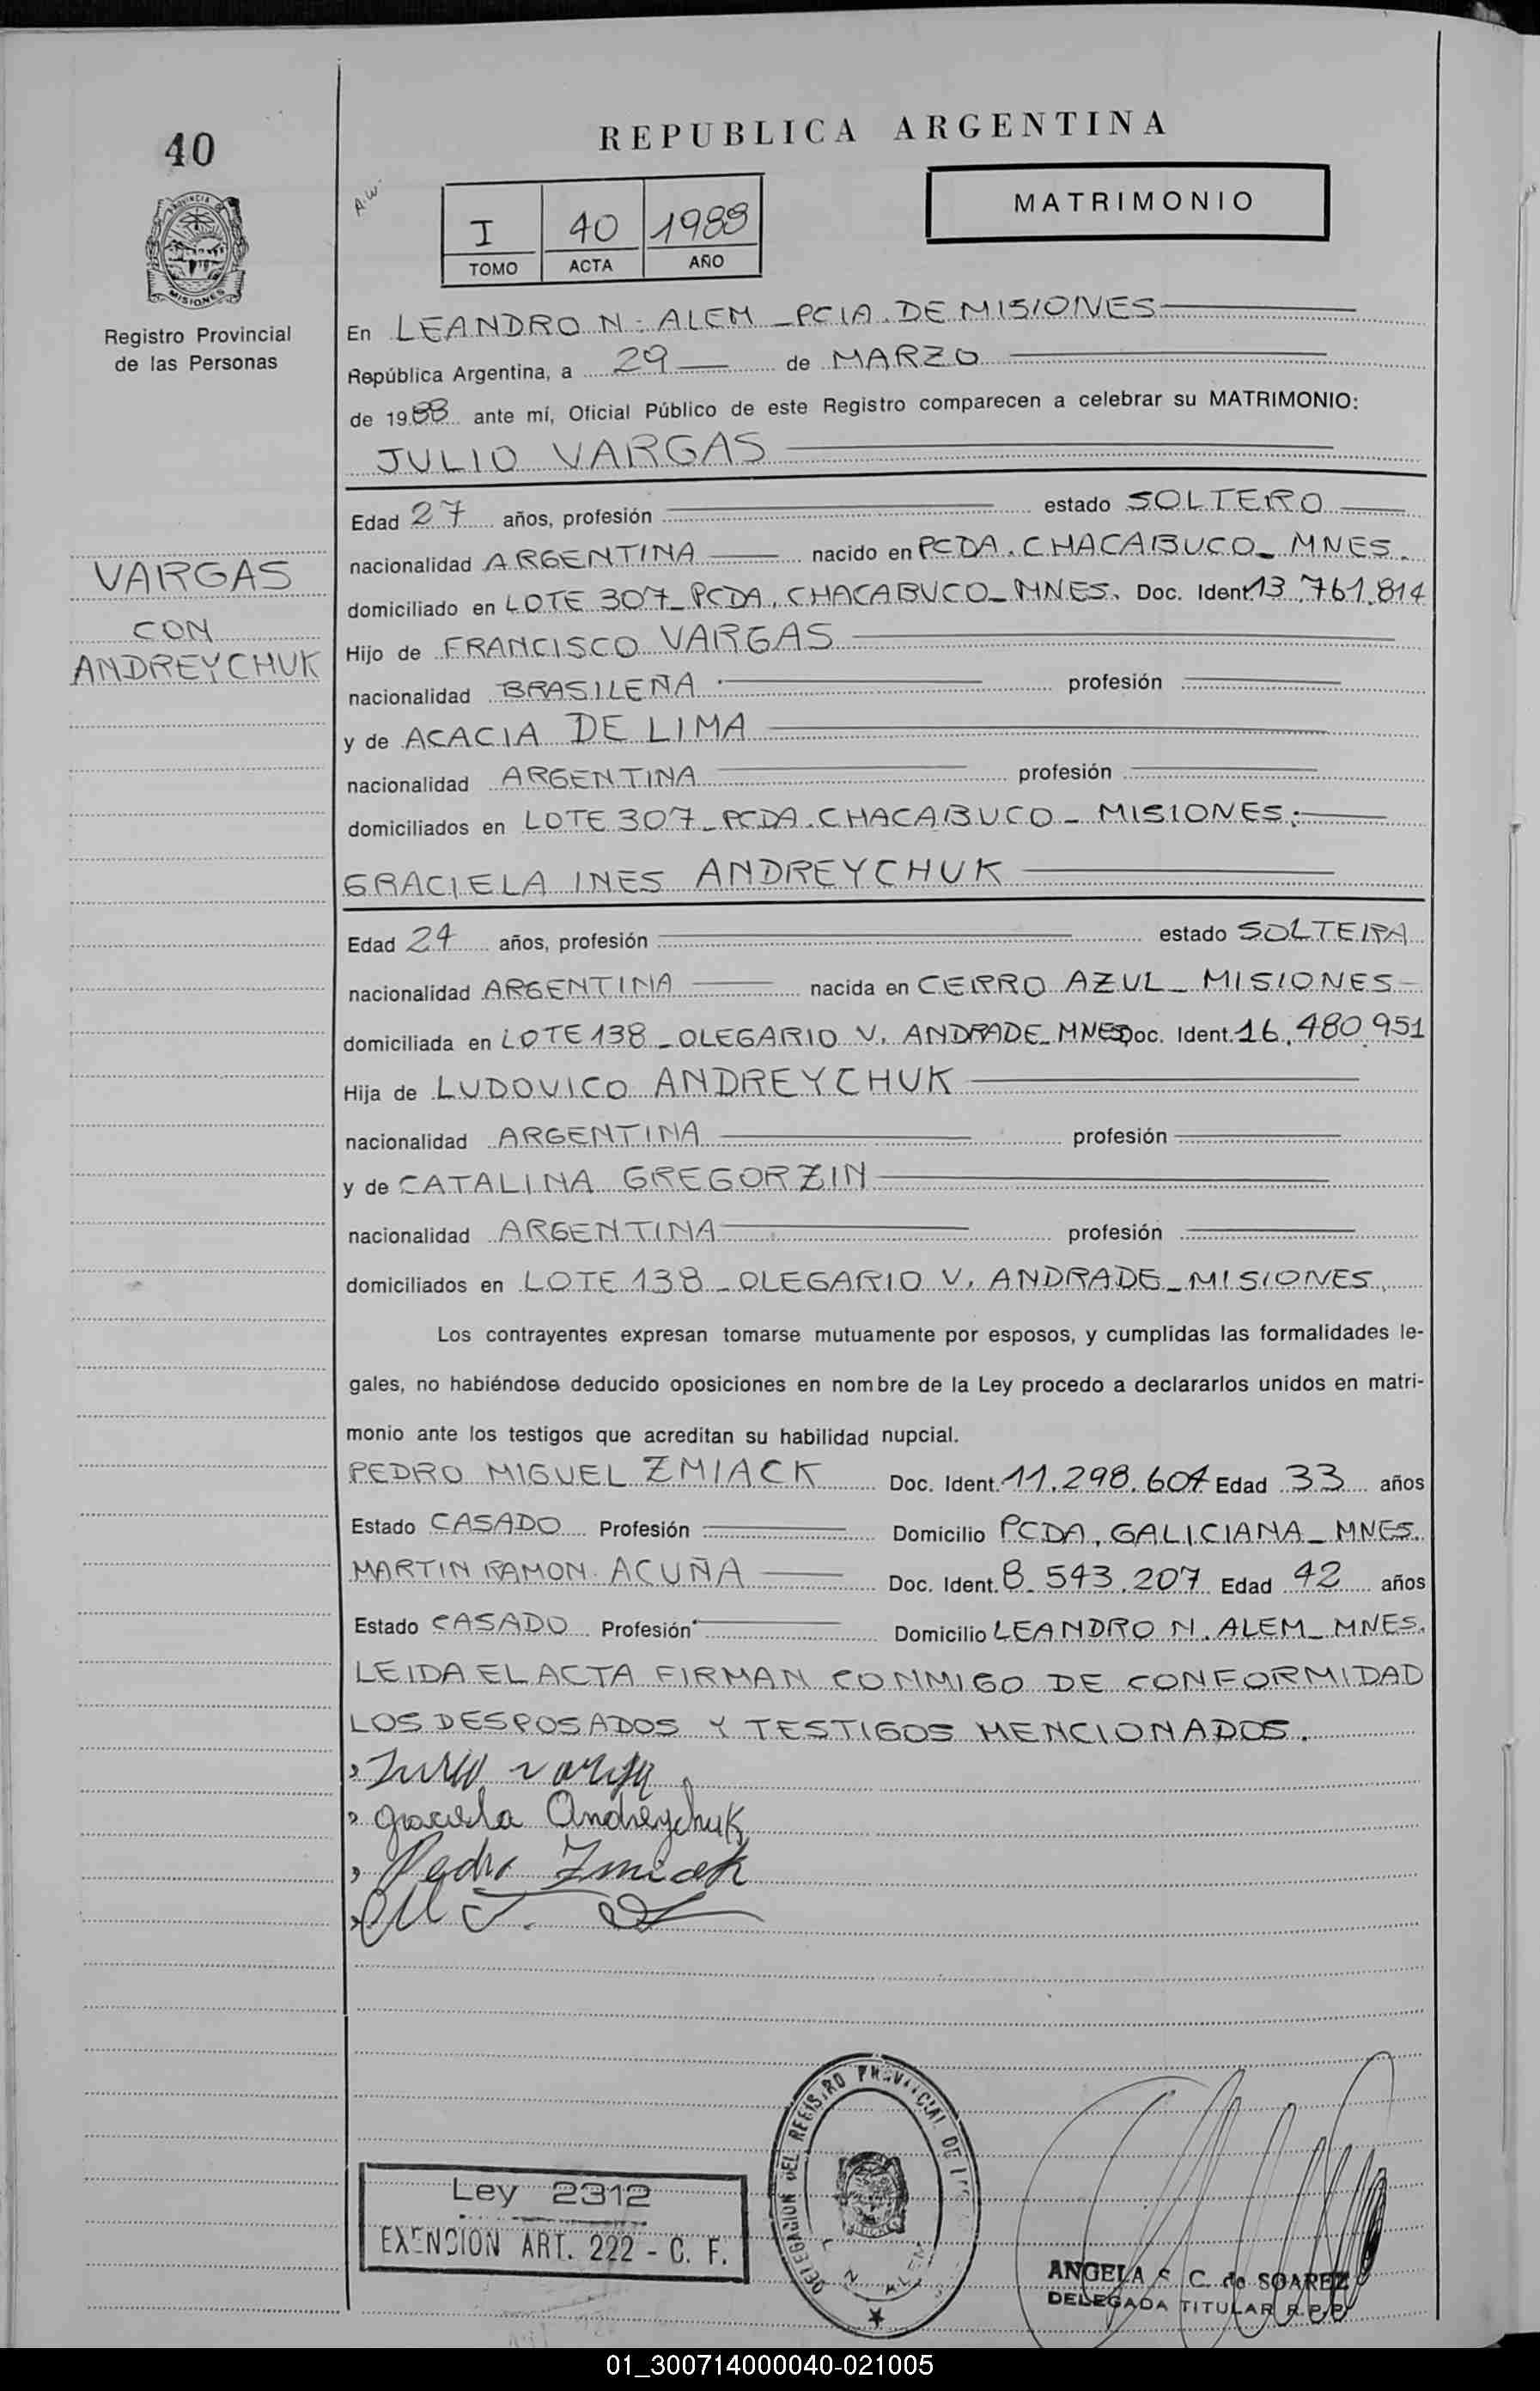 40
REPUBLICA ARGENTINA
A.W.
PROVINCIA DE
MISIONES
I 40 1988
TOMO ACTA AÑO
MATRIMONIO
Registro Provincial
de las Personas
En LEANDRO N. ALEM - PCIA. DE MISIONES
República Argentina, a 29 de MARZO
de 1988 ante mí, Oficial Público de este Registro comparecen a celebrar su MATRIMONIO:
JULIO VARGAS
Edad 27 años, profesión estado SOLTERO
nacionalidad ARGENTINA nacido en PCDA. CHACABUCO - MNES.
VARGAS
CON
ANDREYCHUK
domiciliado en LOTE 307 - PCDA. CHACABUCO - MNES. Doc. Ident. 13.761.814
Hijo de FRANCISCO VARGAS
nacionalidad BRASILEÑA profesión
y de ACACIA DE LIMA
nacionalidad ARGENTINA profesión
domiciliados en LOTE 307 - PCDA. CHACABUCO - MISIONES.
GRACIELA INES ANDREYCHUK
Edad 24 años, profesión estado SOLTERA
nacionalidad ARGENTINA nacida en CERRO AZUL - MISIONES
domiciliada en LOTE 138 - OLEGARIO V. ANDRADE - MNES Doc. Ident. 16.480.951
Hija de LUDOVICO ANDREYCHUK
nacionalidad ARGENTINA profesión
y de CATALINA GREGORZIN
nacionalidad ARGENTINA profesión
domiciliados en LOTE 138 - OLEGARIO V. ANDRADE - MISIONES.
Los contrayentes expresan tomarse mutuamente por esposos, y cumplidas las formalidades le-
gales, no habiéndose deducido oposiciones en nombre de la Ley procedo a declararlos unidos en matri-
monio ante los testigos que acreditan su habilidad nupcial.
PEDRO MIGUEL ZMIACK Doc. Ident. 11.298.604 Edad 33 años
Estado CASADO Profesión Domicilio PCDA. GALICIANA - MNES.
MARTIN RAMON ACUÑA Doc. Ident. 8.543.207 Edad 42 años
Estado CASADO Profesión Domicilio LEANDRO N. ALEM - MNES.
LEIDA EL ACTA FIRMAN CONMIGO DE CONFORMIDAD
LOS DESPOSADOS Y TESTIGOS MENCIONADOS.
Julio Vargas
Graciela Andreychuk
Pedro Zmiak
DELEGACION DEL REGISTRO PROVINCIAL DE
L. N. ALEM
Ley 2312
EXENCION ART. 222 - C. F.
ANGELA S. C. de SOAREZ
DELEGADA TITULAR R.P.P.
01_300714000040-021005